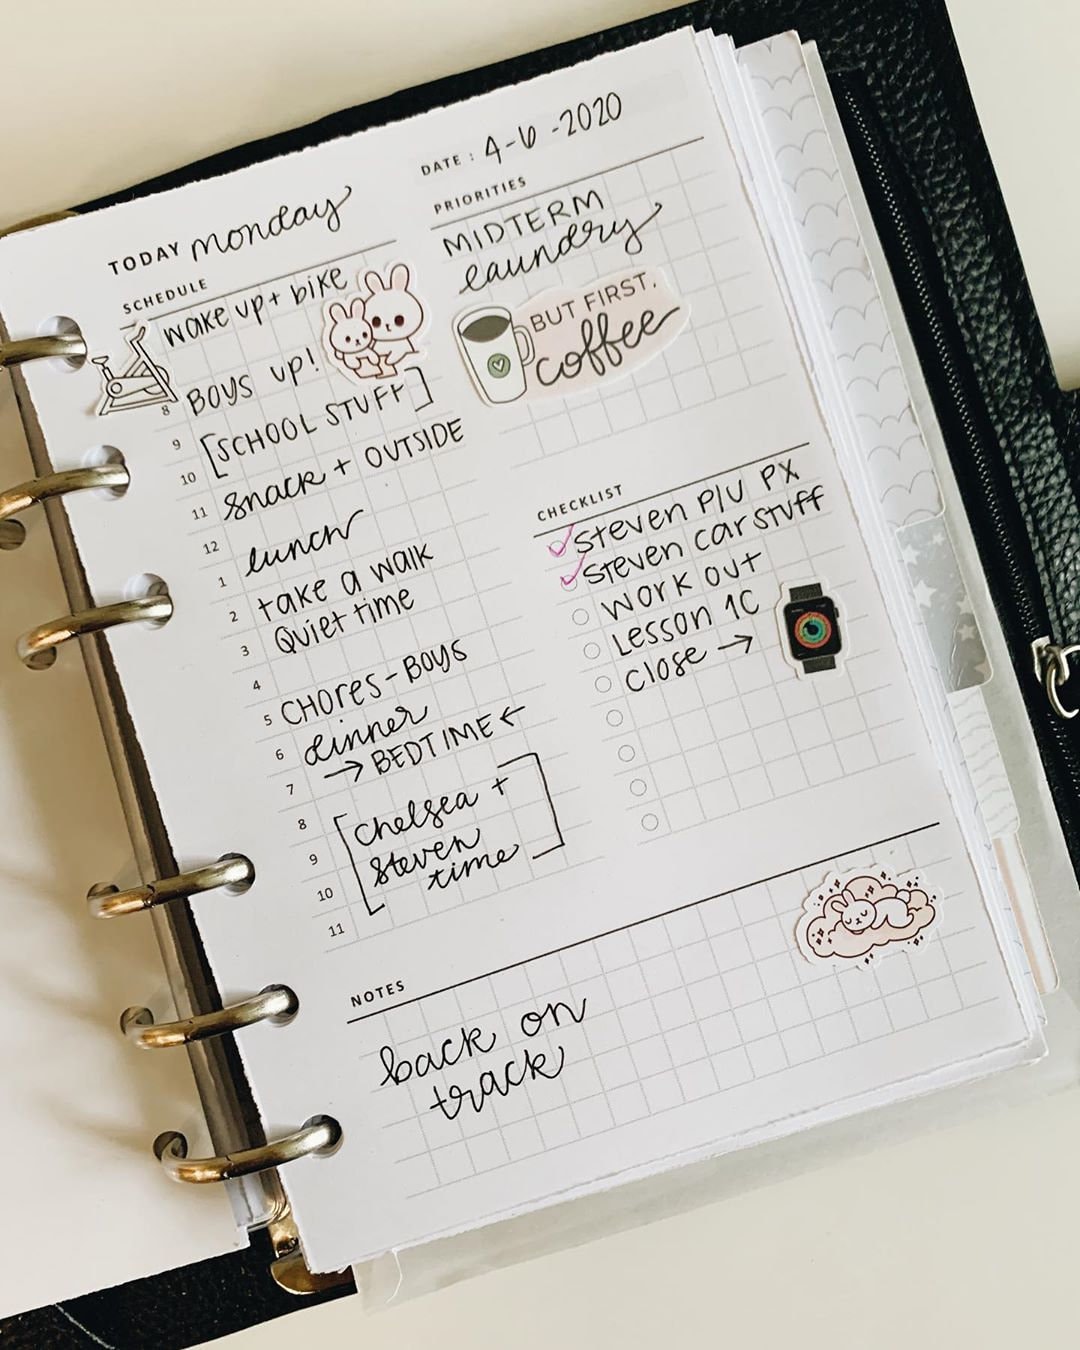 DATE : 4-6-2020
TODAY monday
SCHEDULE
wake up + bike
8 BOYS up!
9 [SCHOOL STUFF]
10
11 snack + OUTSIDE
12
1 lunch
2 take a walk
3 Quiet time
4
5 CHORES - BOYS
6 dinner
7 → BEDTIME ←
8
9 [chelsea +
10 steven
time]
11
PRIORITIES
MIDTERM
laundry
BUT FIRST,
coffee
CHECKLIST
steven P/U PX
steven car stuff
work out
Lesson 1C
close →
NOTES
back on
track